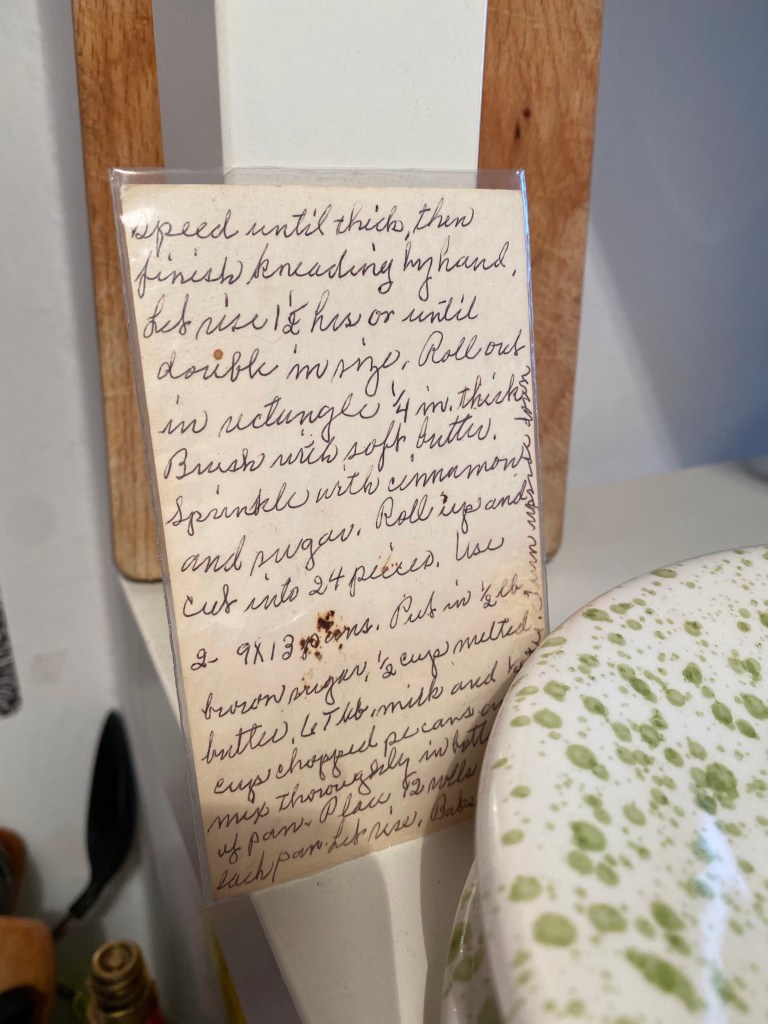 speed until thick, then
finish kneading by hand.
Let rise 1½ hrs or until
double in size. Roll out
in rectangle ¼ in. thick.
Brush with soft butter.
Sprinkle with cinnamon
and sugar. Roll up and
cut into 24 pieces. Use
2 - 9X13 pans. Put in ½ lb
brown sugar, ½ cup melted
butter, 6 Tbb. milk and
cup chopped pecans
mix thoroughly in
of pan. Place 12 rolls
each pan. Let rise. Bake
Turn upside down